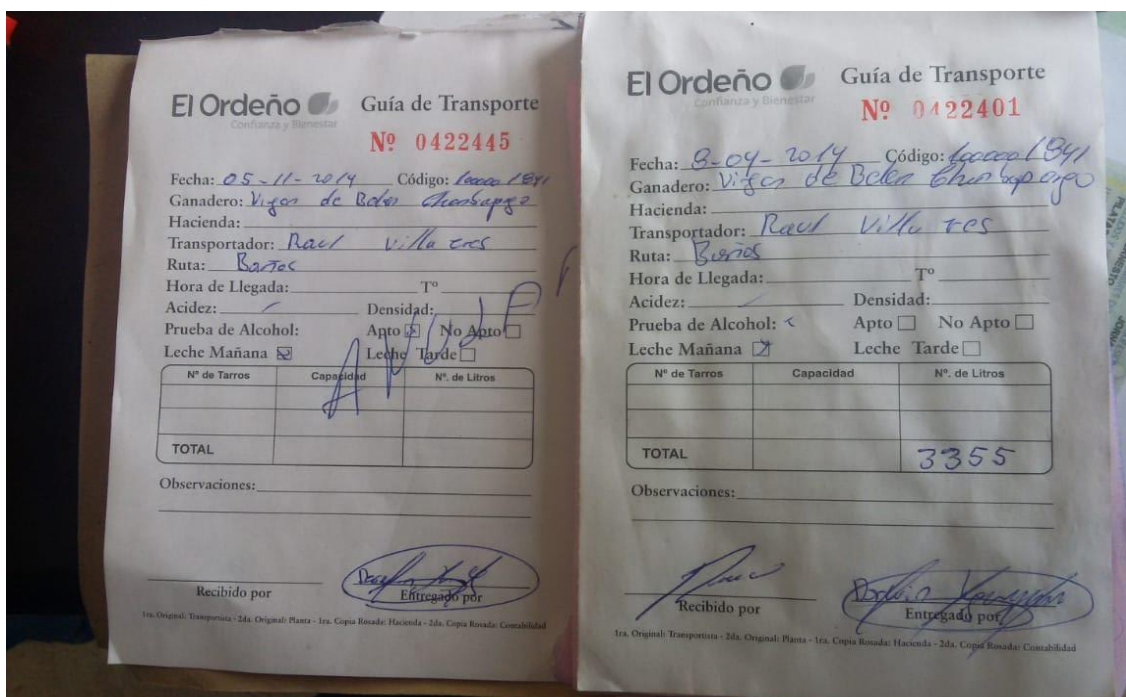 El Ordeño Guía de Transporte
Confianza y Bienestar
Nº 0422445
Fecha: 05-11-2014 Código:
Ganadero: Virgen de Belen
Hacienda:
Transportador: Raul
Ruta: Baños
Hora de Llegada: Tº
Acidez: Densidad:
Prueba de Alcohol: Apto No Apto
Leche Mañana Leche Tarde
Nº de Tarros Capacidad Nº. de Litros
TOTAL
Observaciones:
Recibido por Entregado por
1ra. Original: Transportista - 2da. Original: Planta - 1ra. Copia Rosada: Hacienda - 2da. Copia Rosada: Contabilidad
El Ordeño Guía de Transporte
Confianza y Bienestar
Nº 0422401
Fecha: 8-04-2014 Código:
Ganadero: de Belen
Hacienda:
Transportador: Raul
Ruta: Baños
Hora de Llegada: Tº
Acidez: Densidad:
Prueba de Alcohol: Apto No Apto
Leche Mañana Leche Tarde
Nº de Tarros Capacidad Nº. de Litros
TOTAL 3355
Observaciones:
Recibido por Entregado por
1ra. Original: Transportista - 2da. Original: Planta - 1ra. Copia Rosada: Hacienda - 2da. Copia Rosada: Contabilidad